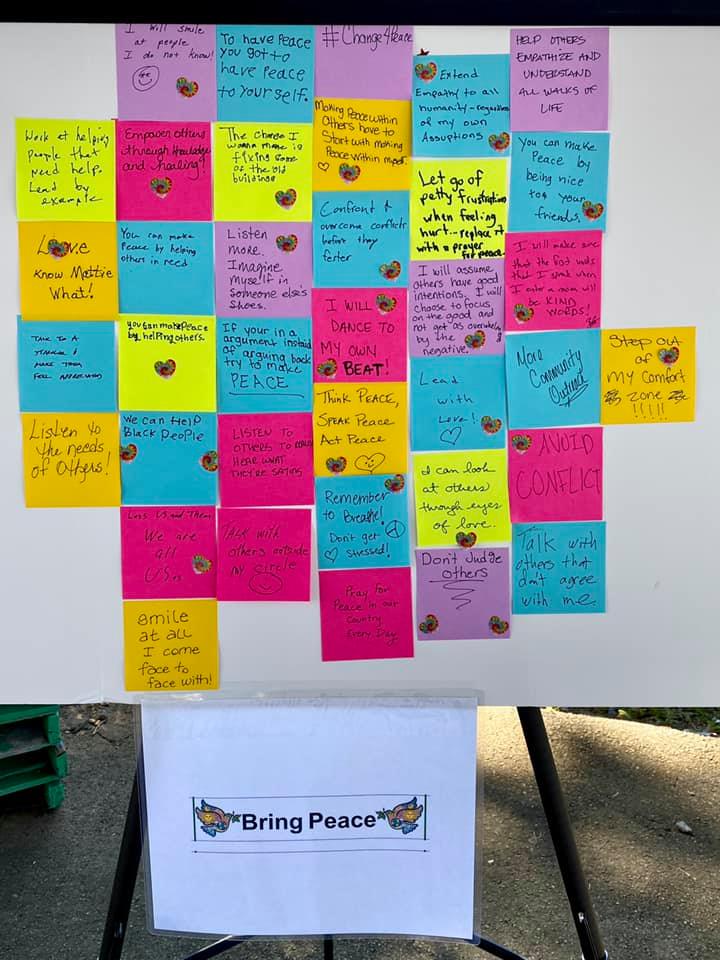 I will smile
at people
I do not know!
To have Peace
you got to
have Peace
to yourself.
#Change4Peace
Extend
Empathy to all
humanity - regardless
of my own
Assuptions
HELP OTHERS
EMPATHIZE AND
UNDERSTAND
ALL WALKS OF
LIFE
Work at helping
People that
need help.
Lead by
example
Empower others
through knowledge
and healing!
The change I
wanna make is
fixing some
of the old
buildings
Making Peace within
Others have to
Start with making
Peace within myself.
Let go of
petty frustrations
when feeling
hurt... replace it
with a prayer
for peace.
You can make
Peace by
being nice
to your
friends.
Love
Know Mattie
What!
You can make
Peace by helping
others in need
Listen
more.
Imagine
myself in
someone else's
shoes.
Confront &
overcome conflicts
before they
fester
I will assume
others have good
intentions. I will
choose to focus
on the good and
not get as overwhelmed
by the
negative.
I will make sure
that the first words
that I speak when
I enter a room will
be KIND
WORDS!
TALK TO A
&
MAKE THEM
FEEL APPRECIATED
you can make Peace
by helping others.
If your in a
argument instead
of arguing back
try to make
PEACE
I WILL
DANCE TO
MY OWN
BEAT!
Lead
with
Love!
More
Community
Outreach
Step out
of
MY Comfort
zone
!!!!!
Listen to
the needs
of Others!
We can Help
Black People
LISTEN TO
OTHERS TO REALLY
HEAR WHAT
THEY'RE SAYING
Think PEACE,
SPEAK Peace
Act Peace
I can look
at others
through eyes
of love.
AVOID
CONFLICT
Less US and Them
We are
all
US.
TALK with
others outside
my circle
Remember
to Breathe!
Don't get
stressed!
Don't Judge
others
Talk with
others that
don't agree
with me.
Smile
at all
I come
face to
face with!
Pray for
Peace in our
Country
Every Day
Bring Peace